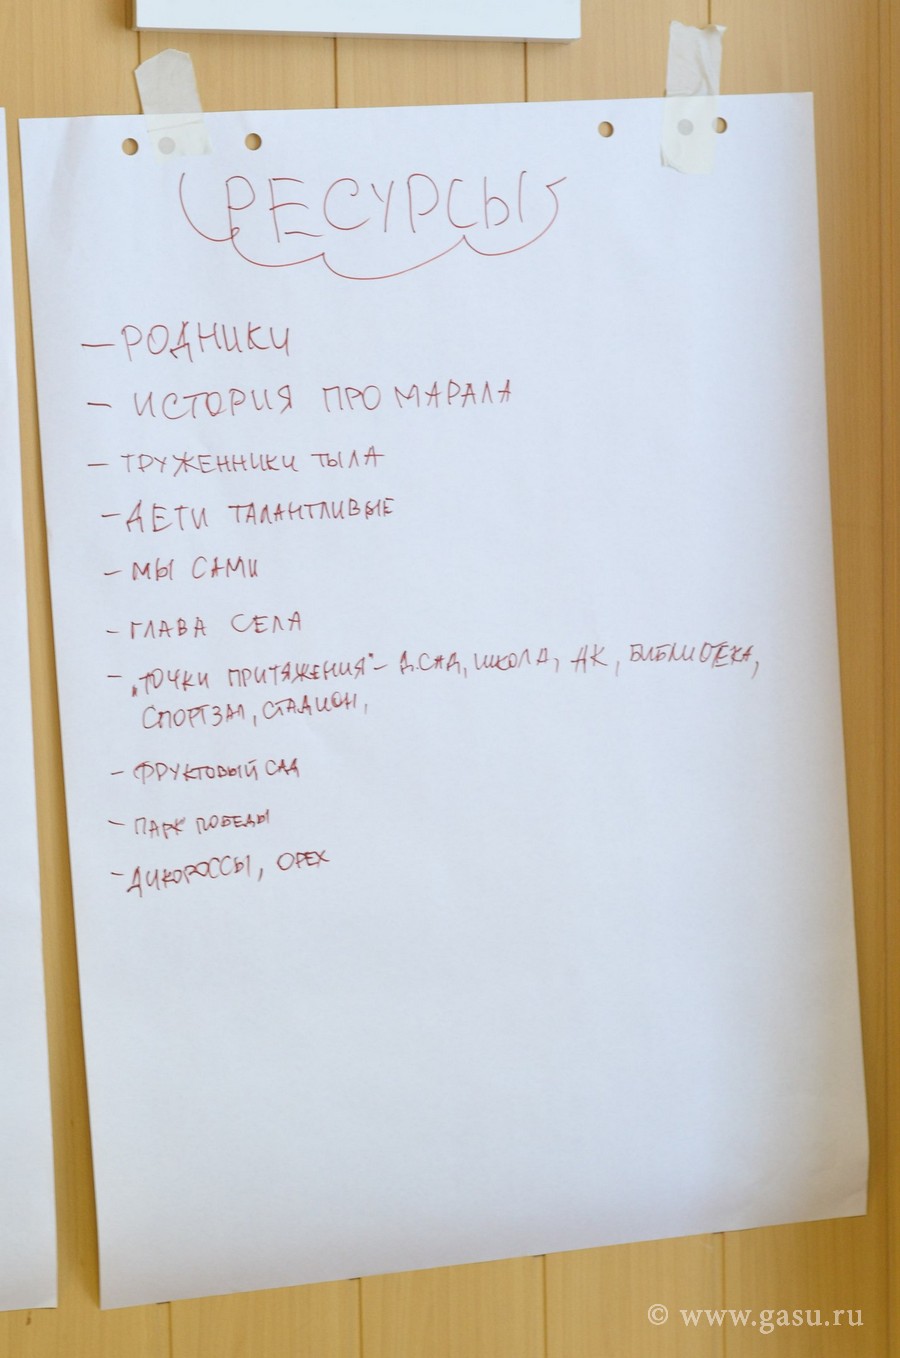 РЕСУРСЫ
— РОДНИКИ
— ИСТОРИЯ ПРО МАРАЛА
— ТРУЖЕННИКИ ТЫЛА
— ДЕТИ ТАЛАНТЛИВЫЕ
— МЫ САМИ
— ГЛАВА СЕЛА
— „ТОЧКИ ПРИТЯЖЕНИЯ" — Д.САД, ШКОЛА, ДК, БИБЛИОТЕКА,
СПОРТЗАЛ, СТАДИОН,
— ФРУКТОВЫЙ САД
— ПАРК ПОБЕДЫ
— ДИКОРОССЫ, ОРЕХ
© www.gasu.ru